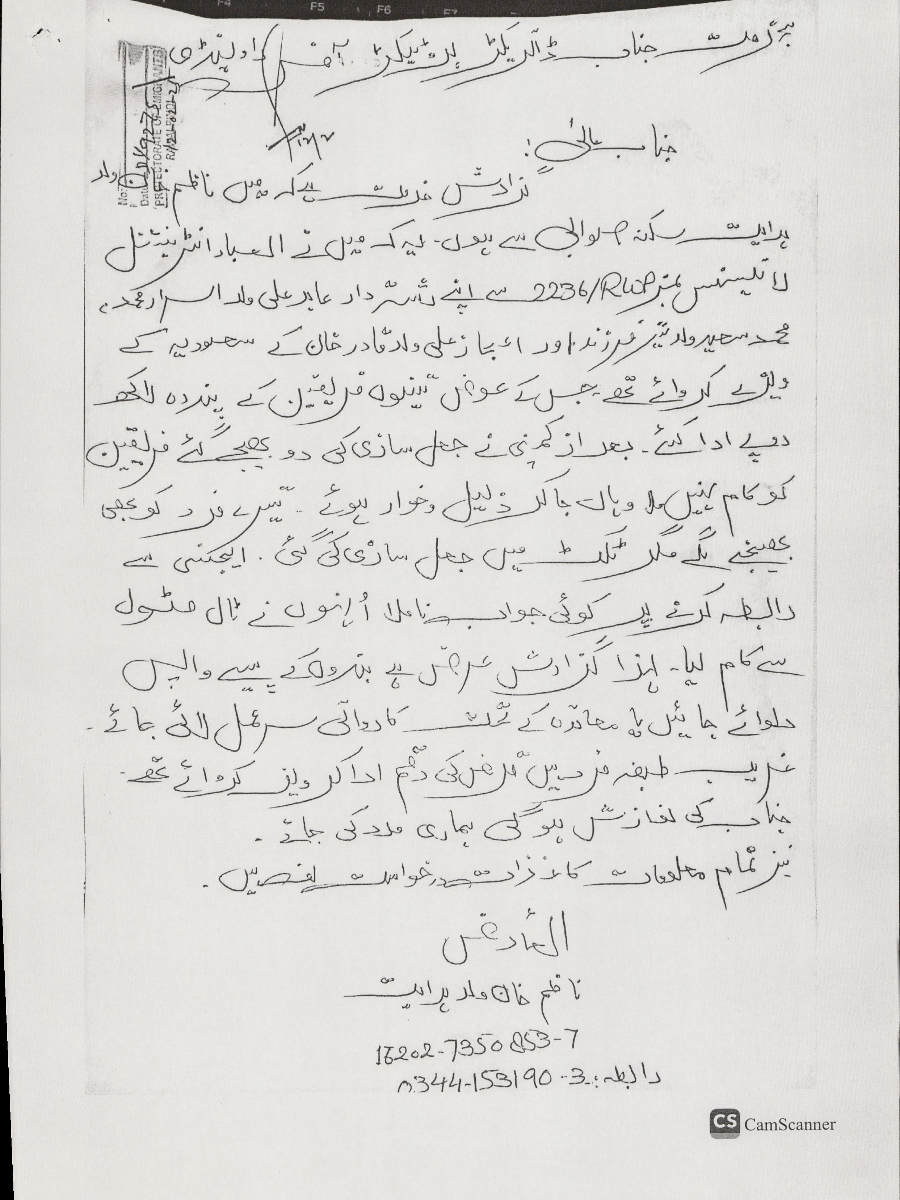 بخدمت جناب ڈائریکٹر پروٹیکٹر آفس راولپنڈی
PROTECTORATE OF EMIGRANTS
RAWALPINDI
جناب عالی!
گزارش خدمت ہے کہ میں ناظم ولد
ہدایت سکنہ صوابی سے ہوں۔ یہ کہ میں نے العباد انٹرنیشنل
لائیسنس نمبر 2236/RWP سے اپنے رشتہ دار عابد علی ولد اسرار محمد،
محمد سعید ولد شیر فرزند اور اعجاز علی ولد قادر خان کے سعودیہ کے
ویزے کروائے تھے جس کے عوض تینوں فریقین کے پندرہ لاکھ
روپے ادا کئے۔ بعد از کمپنی نے جعل سازی کی دو بھیجے گئے فریقین
کو کام نہیں ملا وہاں جا کر ذلیل و خوار ہوئے۔ تیسرے فرد کو بھی
بھیجنے لگے مگر ٹکٹ میں جعل سازی کی گئی۔ ایجنسی سے
رابطہ کرنے پر کوئی جواب نا ملا اُنہوں نے ٹال مٹول
سے کام لیا۔ لہذا گزارش عرض ہے بندوں کے پیسے واپس
دلوائے جائیں یا معائدہ کے تحت کاروائی سر عمل لائی جائے۔
غریب طبقہ فرد ہیں قرض کی رقم ادا کر ویزے کروائے تھے۔
جناب کی نوازش ہو گی ہماری مدد کی جائے۔
نیز تمام معلومات کاغذات درخواست لف ہیں۔
العارض
ناظم خان ولد ہدایت
16202-7350853-7
رابطہ: 0344-153190-3
CS CamScanner